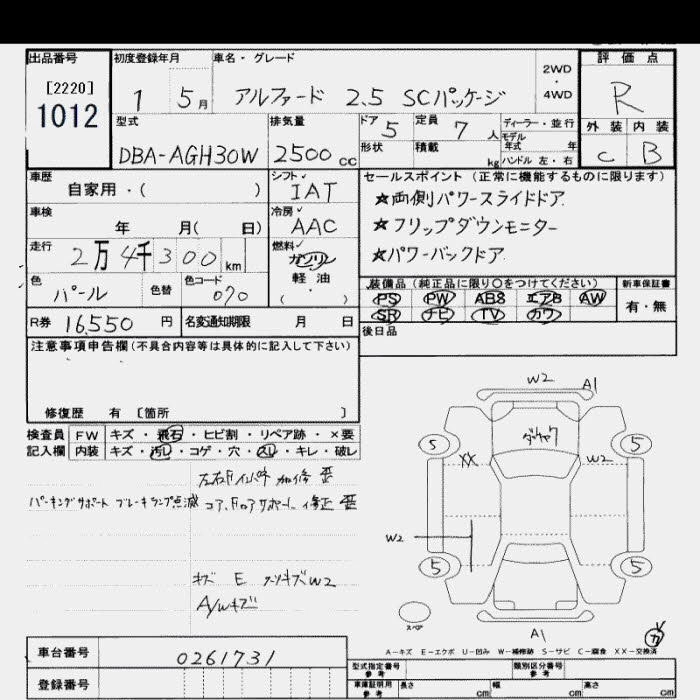 出品番号
[2220]
1012
初度登録年月
1 5月
車名・グレード
アルファード 2.5 SCパッケージ
2WD
・
4WD
評価点
R
外装 内装
C B
型式
DBA-AGH30W
排気量
2500cc
ドア 5
定員 7人
形状
積載 kg
ディーラー・並行
モデル年式 年
ハンドル 左・右
車歴
自家用・( )
シフト
IAT
セールスポイント(正常に機能するものに限ります)
★両側パワースライドドア
★フリップダウンモニター
★パワーバックドア
車検
年 月( 日)
冷房
AAC
走行
2万4千300km
燃料
ガソリン
軽油
( )
色
パール
色替
色コード
070
装備品(純正品に限り○をつけてください)
PS PW ABS エアB AW
SR ナビ TV カワ
新車保証書
有・無
R券 16,550円
名変通知期限 月 日
後日品
注意事項申告欄(不具合内容等は具体的に記入して下さい)
修復歴 有 [箇所 ]
検査員記入欄
FW キズ・飛石・ヒビ割・リペア跡・×要
内装 キズ・汚レ・コゲ・穴・スレ・キレ・破レ
パーキングサポート ブレーキランプ点滅
キズ E
W2
A/Wキズ
W2 A1
5 5
XX W2
W2
5 5
スペア
A1
A-キズ E-エクボ U-凹み W-補修跡 S-サビ C-腐食 XX-交換済
車台番号 0261731
登録番号
型式指定番号
参考
類別区分番号
参考
車庫証明用
参考
長さ cm 幅 cm 高さ cm